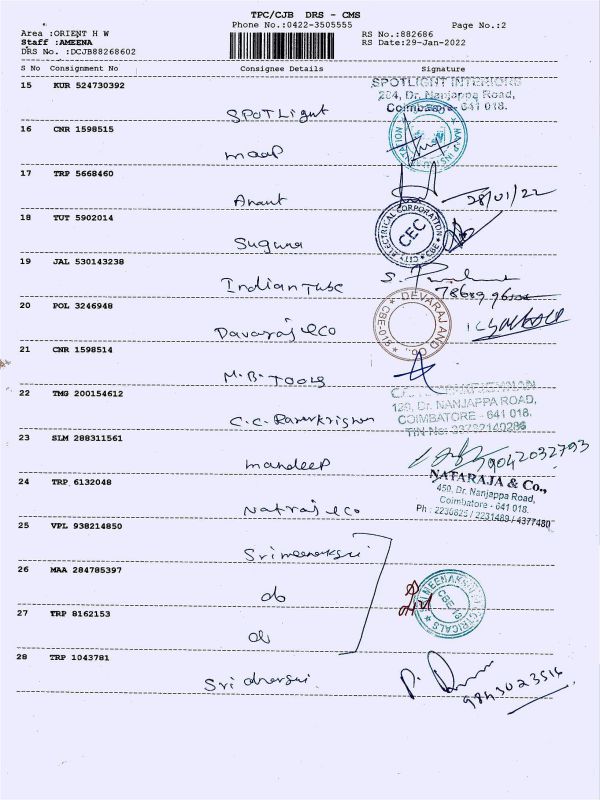 TPC/CJB DRS - CMS
Phone No.:0422-3505555
Page No.:2
Area :ORIENT H W
RS No.:882686
Staff :AMEENA
RS Date:29-Jan-2022
DRS No. :DCJB88268602
S No Consignment No Consignee Details Signature
15 KUR 524730392
SPOTLIGHT INTERIORS
204, Dr. Nanjappa Road,
Coimbatore - 641 018.
SPOTLight
16 CNR 1598515
maap
17 TRP 5668460
Anant
28/01/22
18 TUT 5902014
ELECTRICAL CORPORATION
CEC
Suguna
19 JAL 530143238
Indian Tube
20 POL 3246948
DEVARAJ AND Co.
CBE-018
Davaraj & co
21 CNR 1598514
M.B. TOOLS
22 TMG 200154612
129, Dr. NANJAPPA ROAD,
COIMBATORE - 641 018.
TIN No: 33732140286
C.C. Ramakrishnan
23 SLM 288311561
mandeep
9042032793
24 TRP 6132048
NATARAJA & Co.,
450, Dr. Nanjappa Road,
Coimbatore - 641 018.
Ph : 2230625 / 2231489 / 4377480
Natraj & co
25 VPL 938214850
Srimeenakshi
26 MAA 284785397
do
SRI MEENAKSHI ELECTRICALS
CBE-18
27 TRP 8162153
do
28 TRP 1043781
Sri dharsni
9843023514